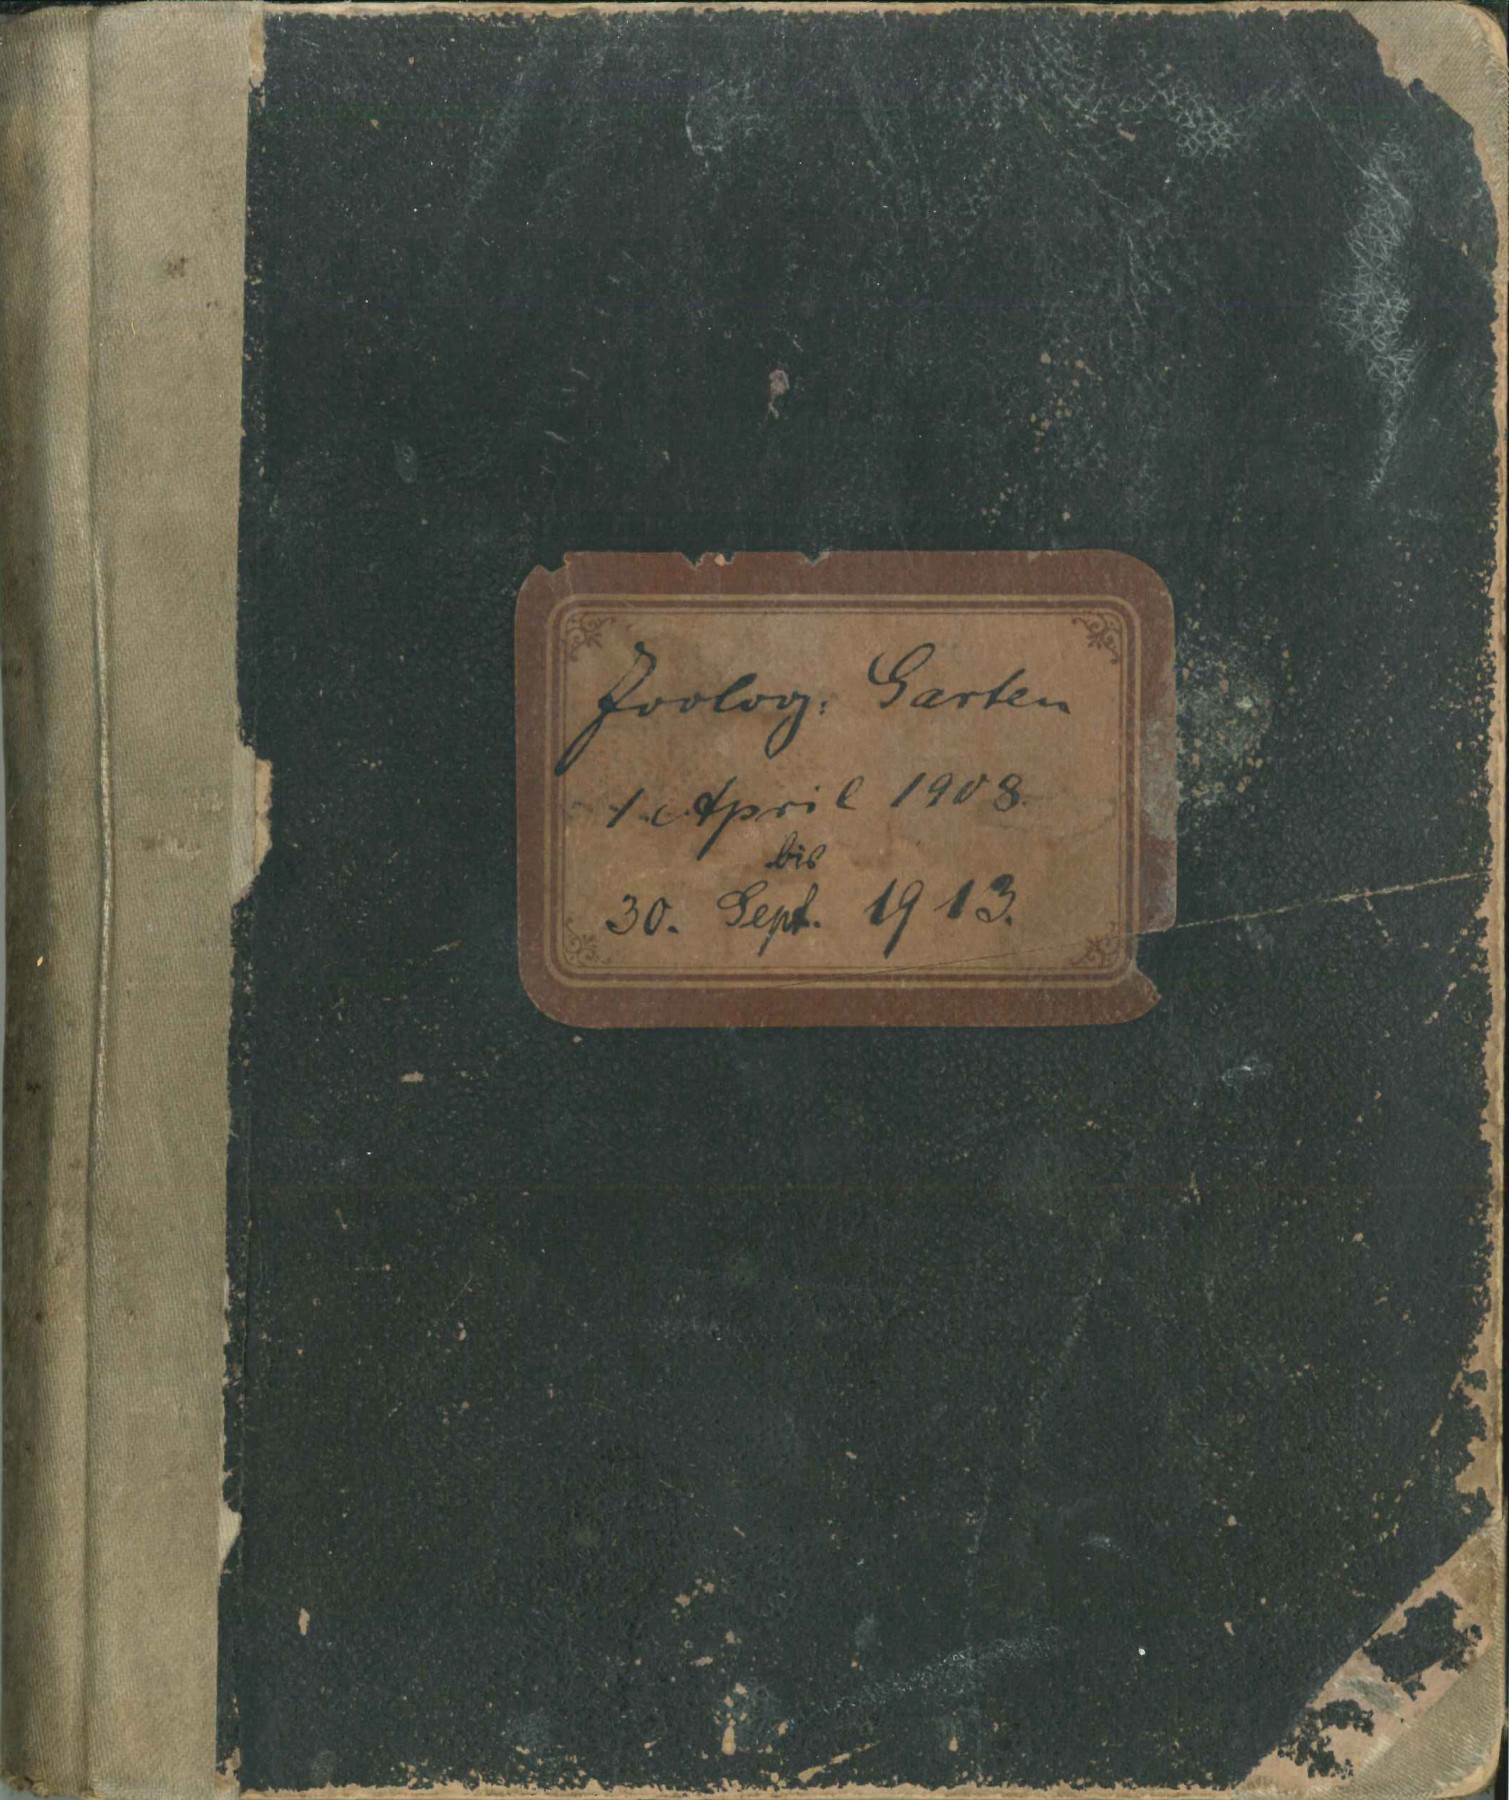 Zoolog: Garten
1. April 1908.
bis
30. Sept. 1913.